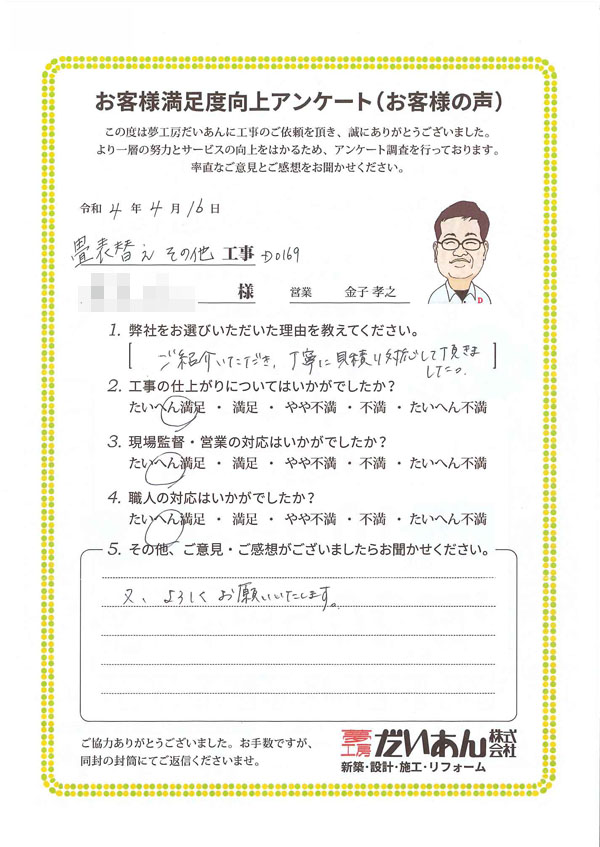 お客様満足度向上アンケート（お客様の声）
この度は夢工房だいあんに工事のご依頼を頂き、誠にありがとうございました。
より一層の努力とサービスの向上をはかるため、アンケート調査を行っております。
率直なご意見とご感想をお聞かせください。
令和 4 年 4 月 16 日
畳表替え その他 工事 D0169
様 営業 金子 孝之
1. 弊社をお選びいただいた理由を教えてください。
ご紹介いただき、丁寧に見積り対応して頂きま
した。
2. 工事の仕上がりについてはいかがでしたか？
たいへん満足 ・ 満足 ・ やや不満 ・ 不満 ・ たいへん不満
3. 現場監督・営業の対応はいかがでしたか？
たいへん満足 ・ 満足 ・ やや不満 ・ 不満 ・ たいへん不満
4. 職人の対応はいかがでしたか？
たいへん満足 ・ 満足 ・ やや不満 ・ 不満 ・ たいへん不満
5. その他、ご意見・ご感想がございましたらお聞かせください。
又、よろしくお願いいたします。
ご協力ありがとうございました。お手数ですが、
同封の封筒にてご返信くださいませ。
夢工房 だいあん 株式会社
新築・設計・施工・リフォーム